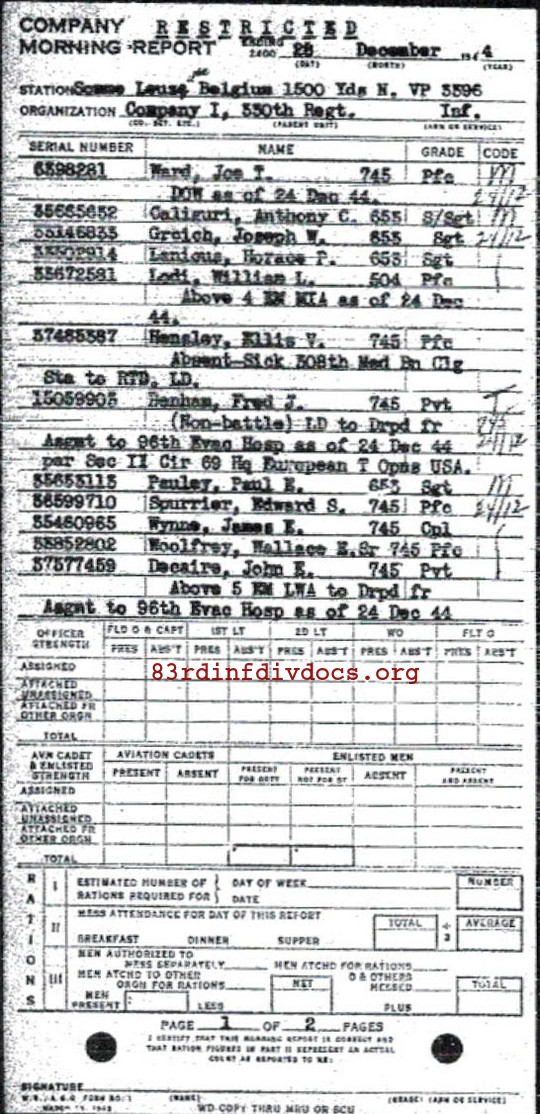 COMPANY RESTRICTED
MORNING REPORT ENDING 2400 28 December 194 4
(DAY) (MONTH) (YEAR)
STATION Somme Leuze Belgium 1500 Yds N. VP 3396
ORGANIZATION Company I, 330th Regt. Inf.
(CO., BCT., ETC.) (PARENT UNIT) (ARM OR SERVICE)
SERIAL NUMBER NAME GRADE CODE
6398281 Ward, Joe T. 745 Pfc M
DOW as of 24 Dec 44. 24/12
35665652 Caliguri, Anthony C. 653 S/Sgt M
35146835 Greich, Joseph W. 653 Sgt 24/12
Lanious, Horace P. 653 Sgt
35672581 Lodi, William L. 504 Pfc
Above 4 EM MIA as of 24 Dec
44.
37485387 Hensley, Ellis V. 745 Pfc
Absent-Sick 308th Med Bn Clg
Sta to RTD. LD.
15059903 Denham, Fred J. 745 Pvt
(Non-battle) LD to Drpd fr
Asgmt to 96th Evac Hosp as of 24 Dec 44 24/12
par Sec II Cir 69 Hq European T Opns USA.
35653113 Pauley, Paul E. 653 Sgt M
36599710 Spurrier, Edward S. 745 Pfc 24/12
35460965 Wynne, James E. 745 Cpl
33852802 Woolfrey, Wallace E.Sr 745 Pfc
37577459 Decaire, John E. 745 Pvt
Above 5 EM LWA to Drpd fr
Asgmt to 96th Evac Hosp as of 24 Dec 44
OFFICER STRENGTH FLD O & CAPT 1ST LT 2D LT WO FLT O
PRES ABS'T PRES ABS'T PRES ABS'T PRES ABS'T PRES ABS'T
ASSIGNED
83rdinfdivdocs.org
ATTACHED UNASSIGNED
ATTACHED FR OTHER ORGN
TOTAL
AVN CADET & ENLISTED STRENGTH AVIATION CADETS ENLISTED MEN
PRESENT ABSENT PRESENT FOR DUTY PRESENT NOT FOR DY ABSENT PRESENT AND ABSENT
ASSIGNED
ATTACHED UNASSIGNED
ATTACHED FR OTHER ORGN
TOTAL
RATIONS
I ESTIMATED NUMBER OF RATIONS REQUIRED FOR DAY OF WEEK DATE NUMBER
II MESS ATTENDANCE FOR DAY OF THIS REPORT TOTAL ÷ 3 AVERAGE
BREAKFAST DINNER SUPPER
III MEN AUTHORIZED TO MESS SEPARATELY MEN ATCHD FOR RATIONS
MEN ATCHD TO OTHER ORGN FOR RATIONS NET O & OTHERS MESSED TOTAL
MEN PRESENT LESS PLUS
PAGE 1 OF 2 PAGES
I CERTIFY THAT THIS MORNING REPORT IS CORRECT AND
THAT RATION FIGURES IN PART II REPRESENT AN ACTUAL
COUNT AS REPORTED TO ME:
SIGNATURE
W.D., A.G.O. FORM NO. 1 (NAME) (GRADE) (ARM OR SERVICE)
WD COPY THRU MRU OR SCU